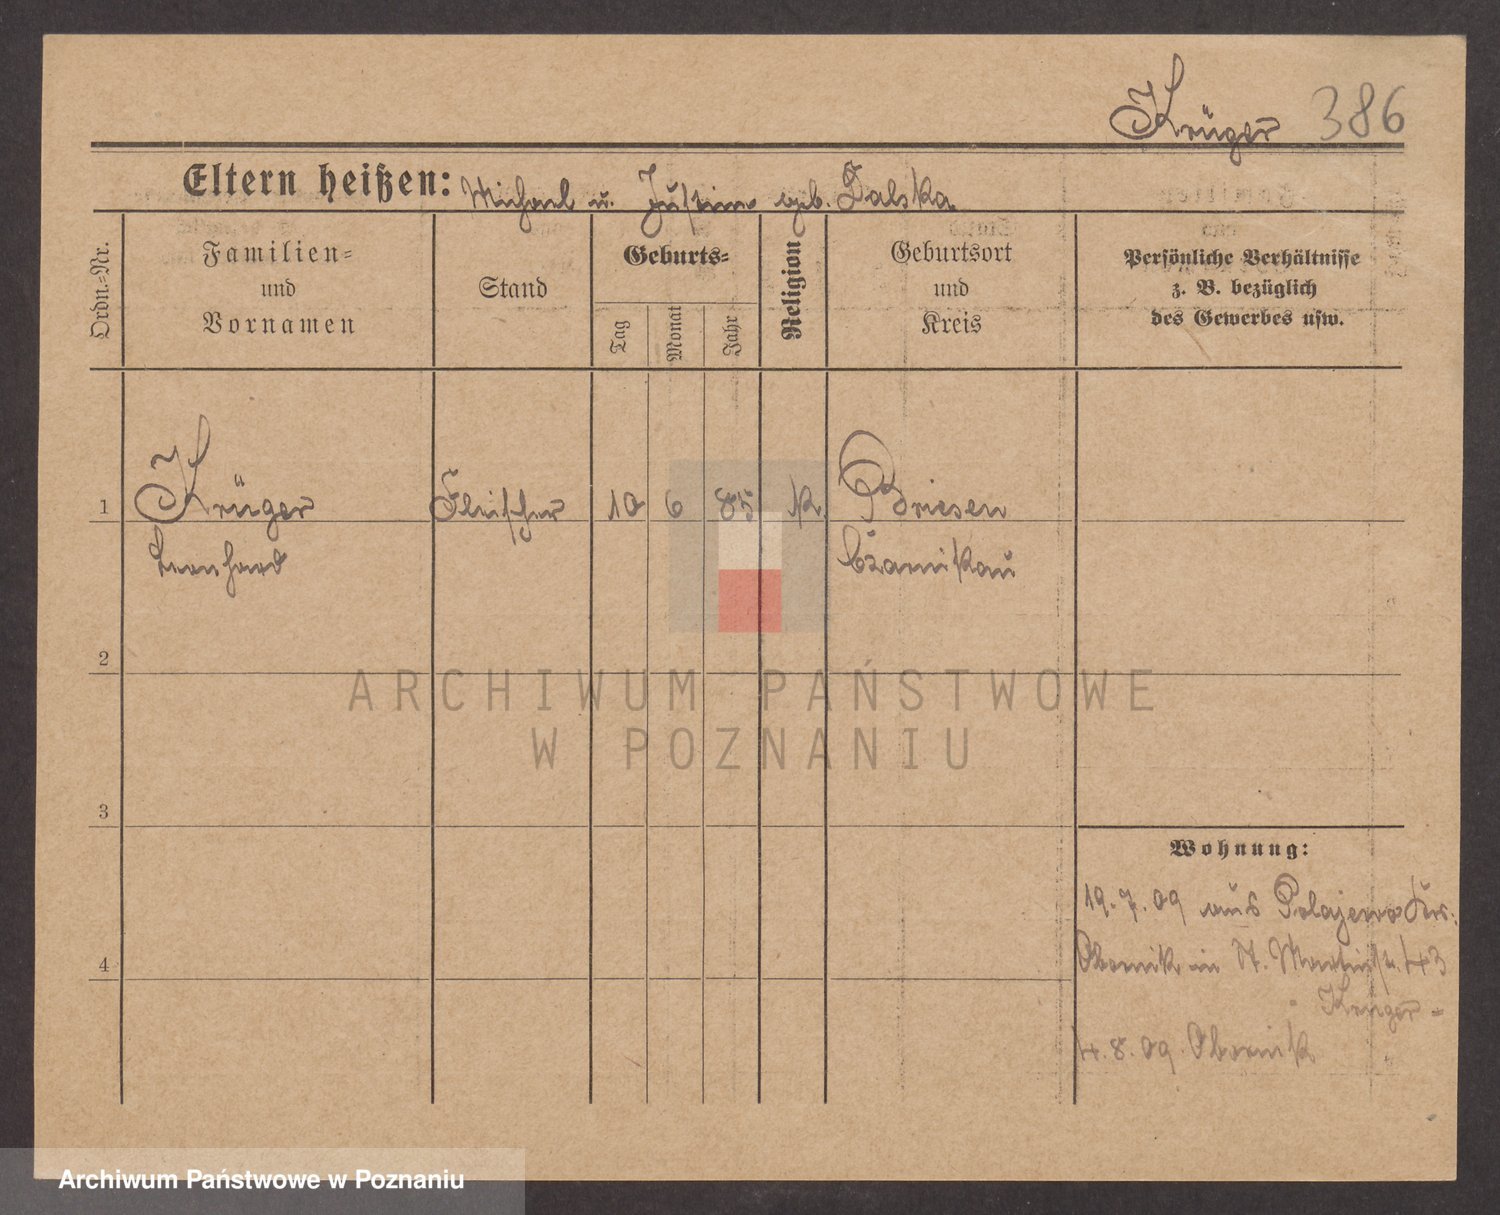 Krüger 386
Eltern heißen: Michael u. Justine geb. Dalska
Ordn.-Nr.
Familien-
und
Vornamen
Stand
Geburts-
Tag
Monat
Jahr
Religion
Geburtsort
und
Kreis
Persönliche Verhältnisse
z. B. bezüglich
des Gewerbes usw.
1 Krüger Fleischer 10 6 85 k. Briesen
Leonhard Czarnikau
2
ARCHIWUM PAŃSTWOWE
W POZNANIU
3
Wohnung:
19.7.09 aus Polajewo Krs.
4 Obornik in St. Martinstr. 43
Krüger -
4.8.09 Obornik
Archiwum Państwowe w Poznaniu